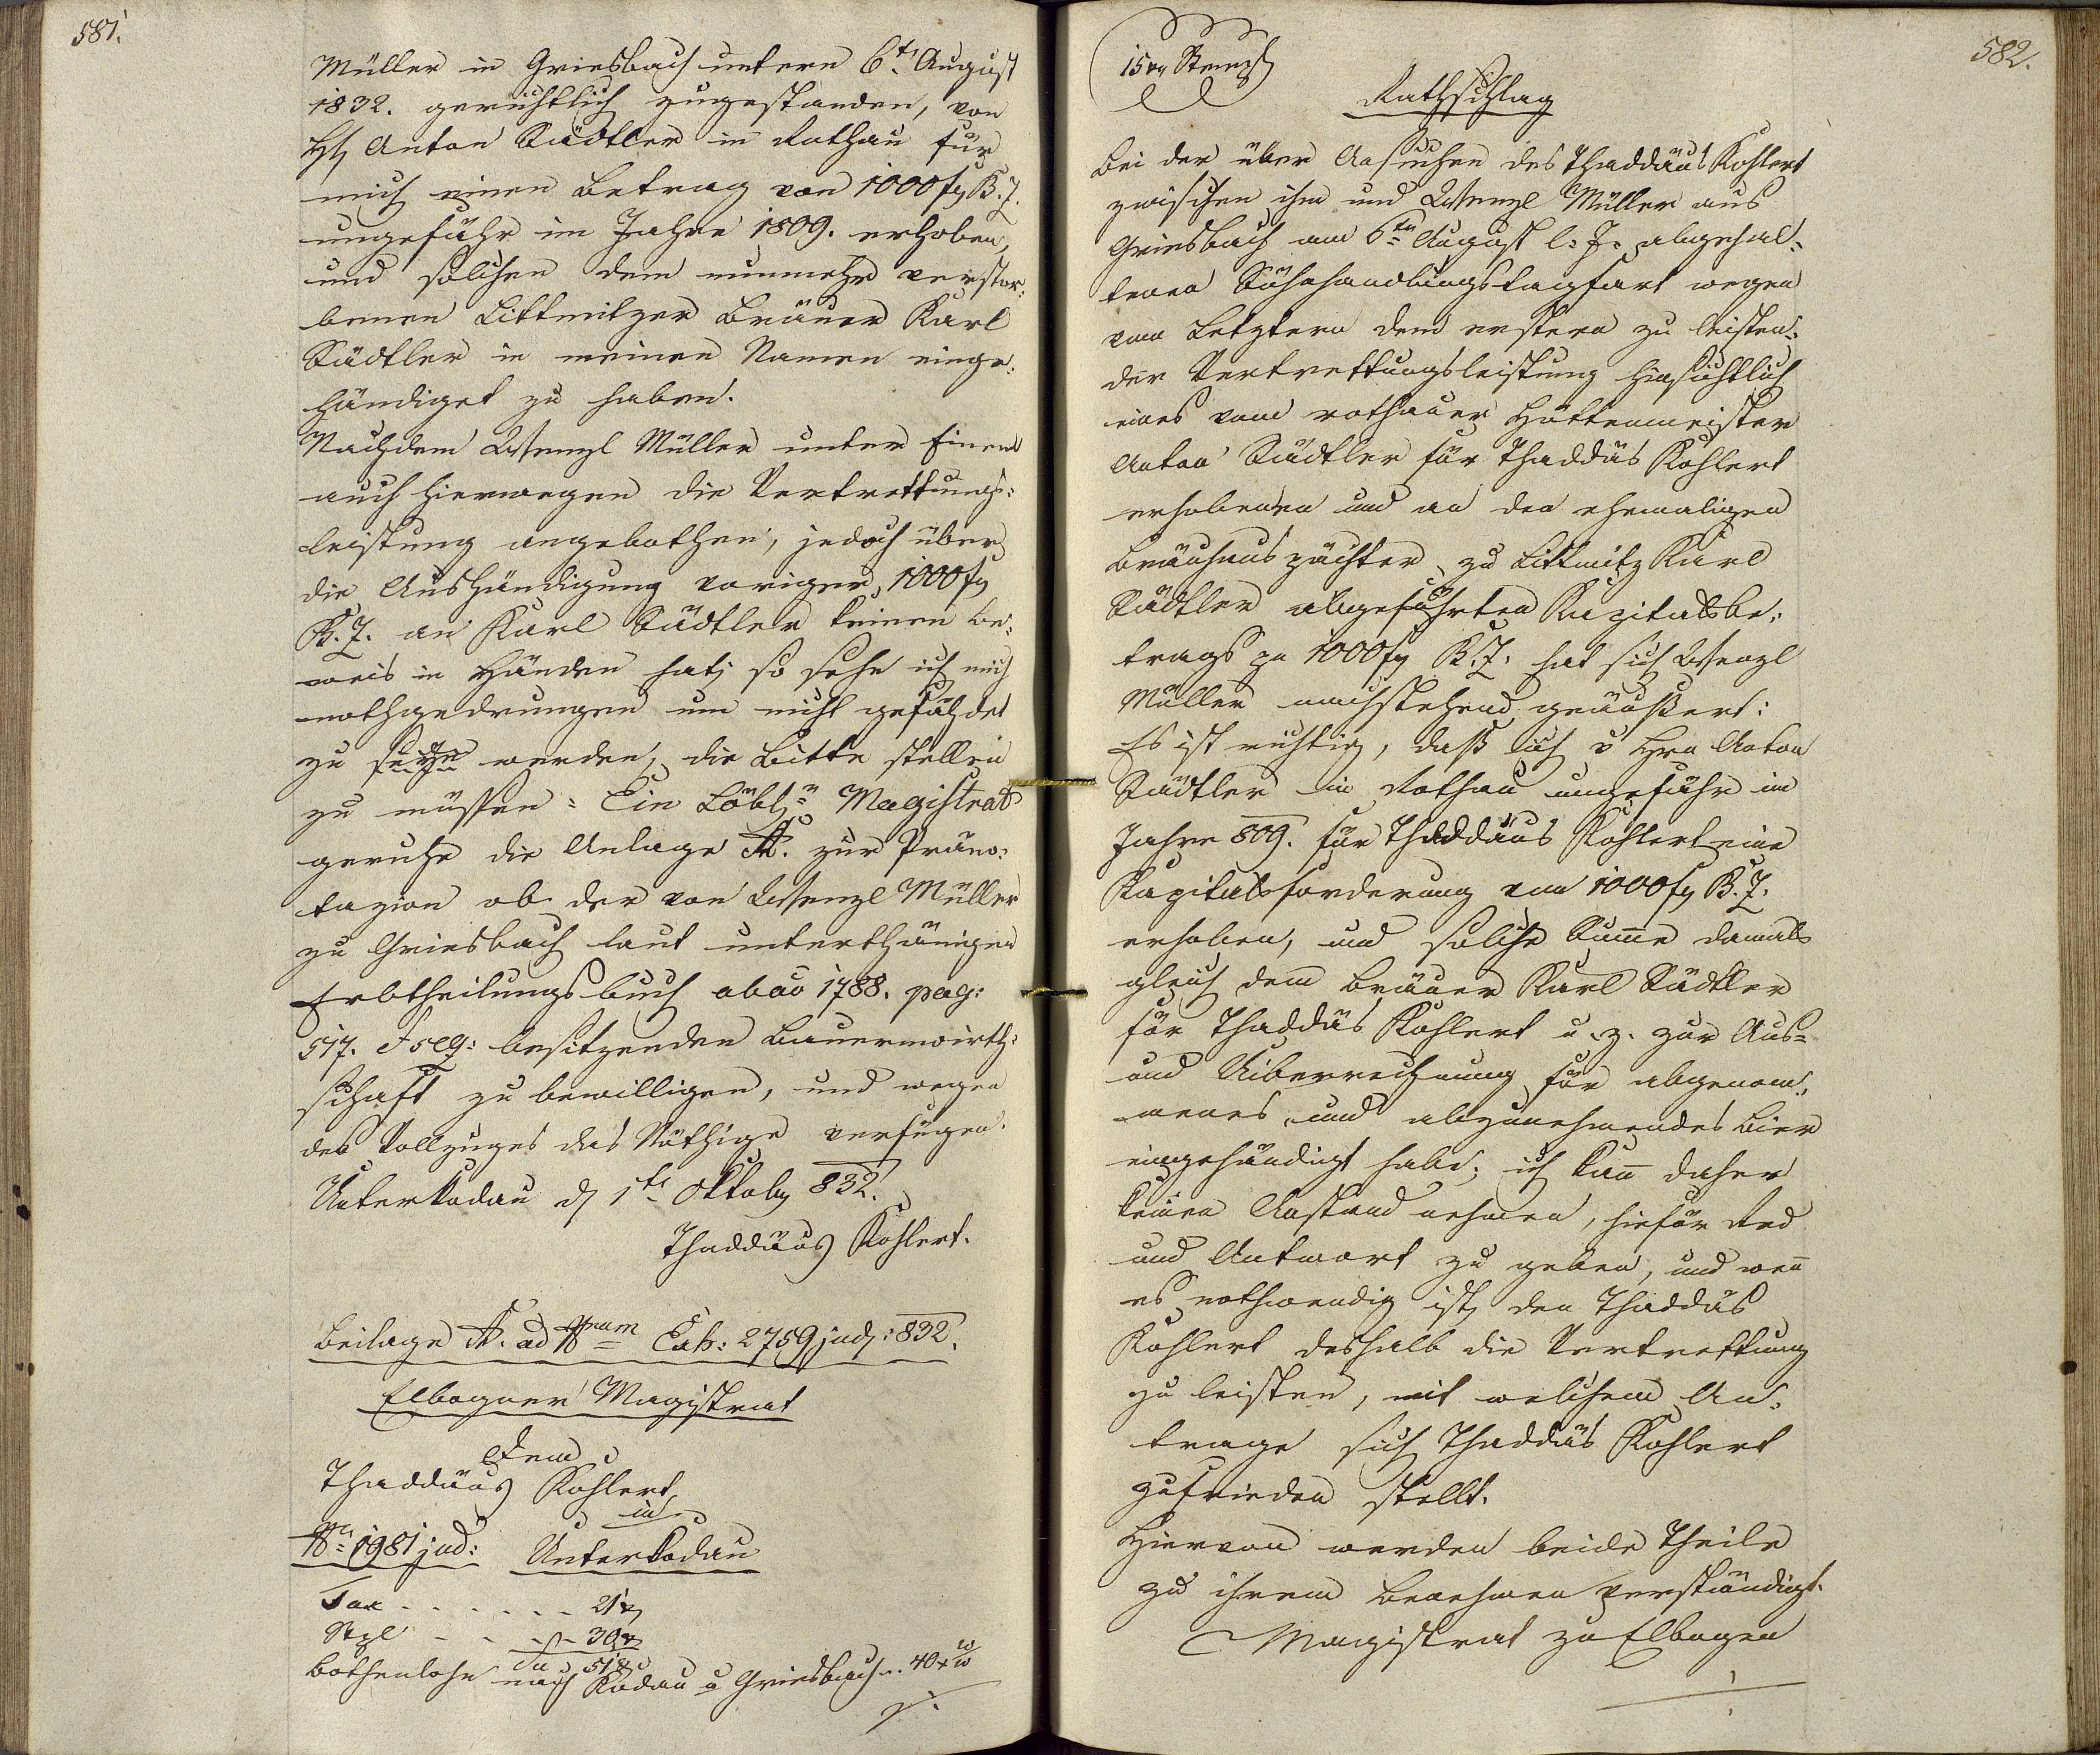 581.
Müller in Griesbach unterm 6t. August
1832. gerichtlich zugestanden, von
H. Anton Städtler in Rothau für
mich einen Betrag von 1000 f B. Z.
ungefähr im Jahre 1809. erhoben,
und solchen dem nunmehr verstor:
benen Littmitzer Bräuer Karl
Städtler in meinen Namen einge:
händiget zu haben.
Nachdem Wenzl Müller unter Einem
auch hierwegen die Vertrettungs:
leistung angebothen, jedoch über
die Aushändigung voriger 1000 f
B. Z. an Karl Städtler keinen Be:
weis in Händen hat; so sehe ich mich
nothgedrungen um nicht gefährdet
zu seyn werden, die Bitte stellen
zu müssen: Ein Löbl. Magistrat
geruhe die Anlage A. zur Präno:
tazion ob der von Wenzl Müller
zu Griesbach laut unterthänigen
Erbtheilungsbuch ab ao 1788. pag:
517. & seq: besitzenden Bauernwirth:
schaft zu bewilligen, und wegen
des Vollzuges das Nöthige verfügen.
Unterkodau d 1t. Oktob 832.
Thaddäus Kohlert.
Beilage A. ad Nrum Exh: 2759 jud: 832.
Elbogner Magistrat
Dem
Thaddäus Kohlert
in
Nr. 1981 jud: Unterkodau
Tax - - - - - - 21 x
Stpl - - - - - 30 x
Su 51 x
Bothenlohn nach Kodau u Griesbach .. 40 x
582.
15 x Stempl
Rathschlag
Bei der über Ansuchen des Thaddäus Kohlert
zwischen ihm und Wenzl Müller aus
Griesbach am 6ten August l: J: abgehal:
tenen Sühnhandlungstagfart wegen
vom Letztern dem erstern zu leisten:
der Vertrettungsleistung hinsichtlich
eines vom rothauer Hüttenmeister
Anton Städtler für Thaddäs Kohlert
erhobenen und an den ehemaligen
Bräuhauspächter zu Littmitz Karl
Städtler abgeführten Kapitalsbe:
trags pr 1000 f B. Z. hat sich Wenzl
Müller nachstehend geäußert:
Es ist richtig, daß ich v Hrn Anton
Städtler in Rothau ungefähr im
Jahre 809. für Thaddäus Kohlert eine
Kapitalsforderung von 1000 f B. Z.
erhoben, und solche Sume damals
gleich dem Bräuer Karl Städtler
für Thaddäs Kohlert u. z. zur Aus=
und Uiberrechnung für abgenom:
menes und abzunehmendes Bier
eingehändigt habe; ich kan daher
keinen Anstand nehmen, hiefür Red
und Antwort zu geben, und wen
es nothwendig ist, den Thaddäs
Kohlert deshalb die Vertrettung
zu leisten, mit welchem An:
trage sich Thaddäs Kohlert
zufrieden stellt.
Hievon werden beide Theile
zu ihrem Benehmen verständigt.
Magistrat zu Elbogen